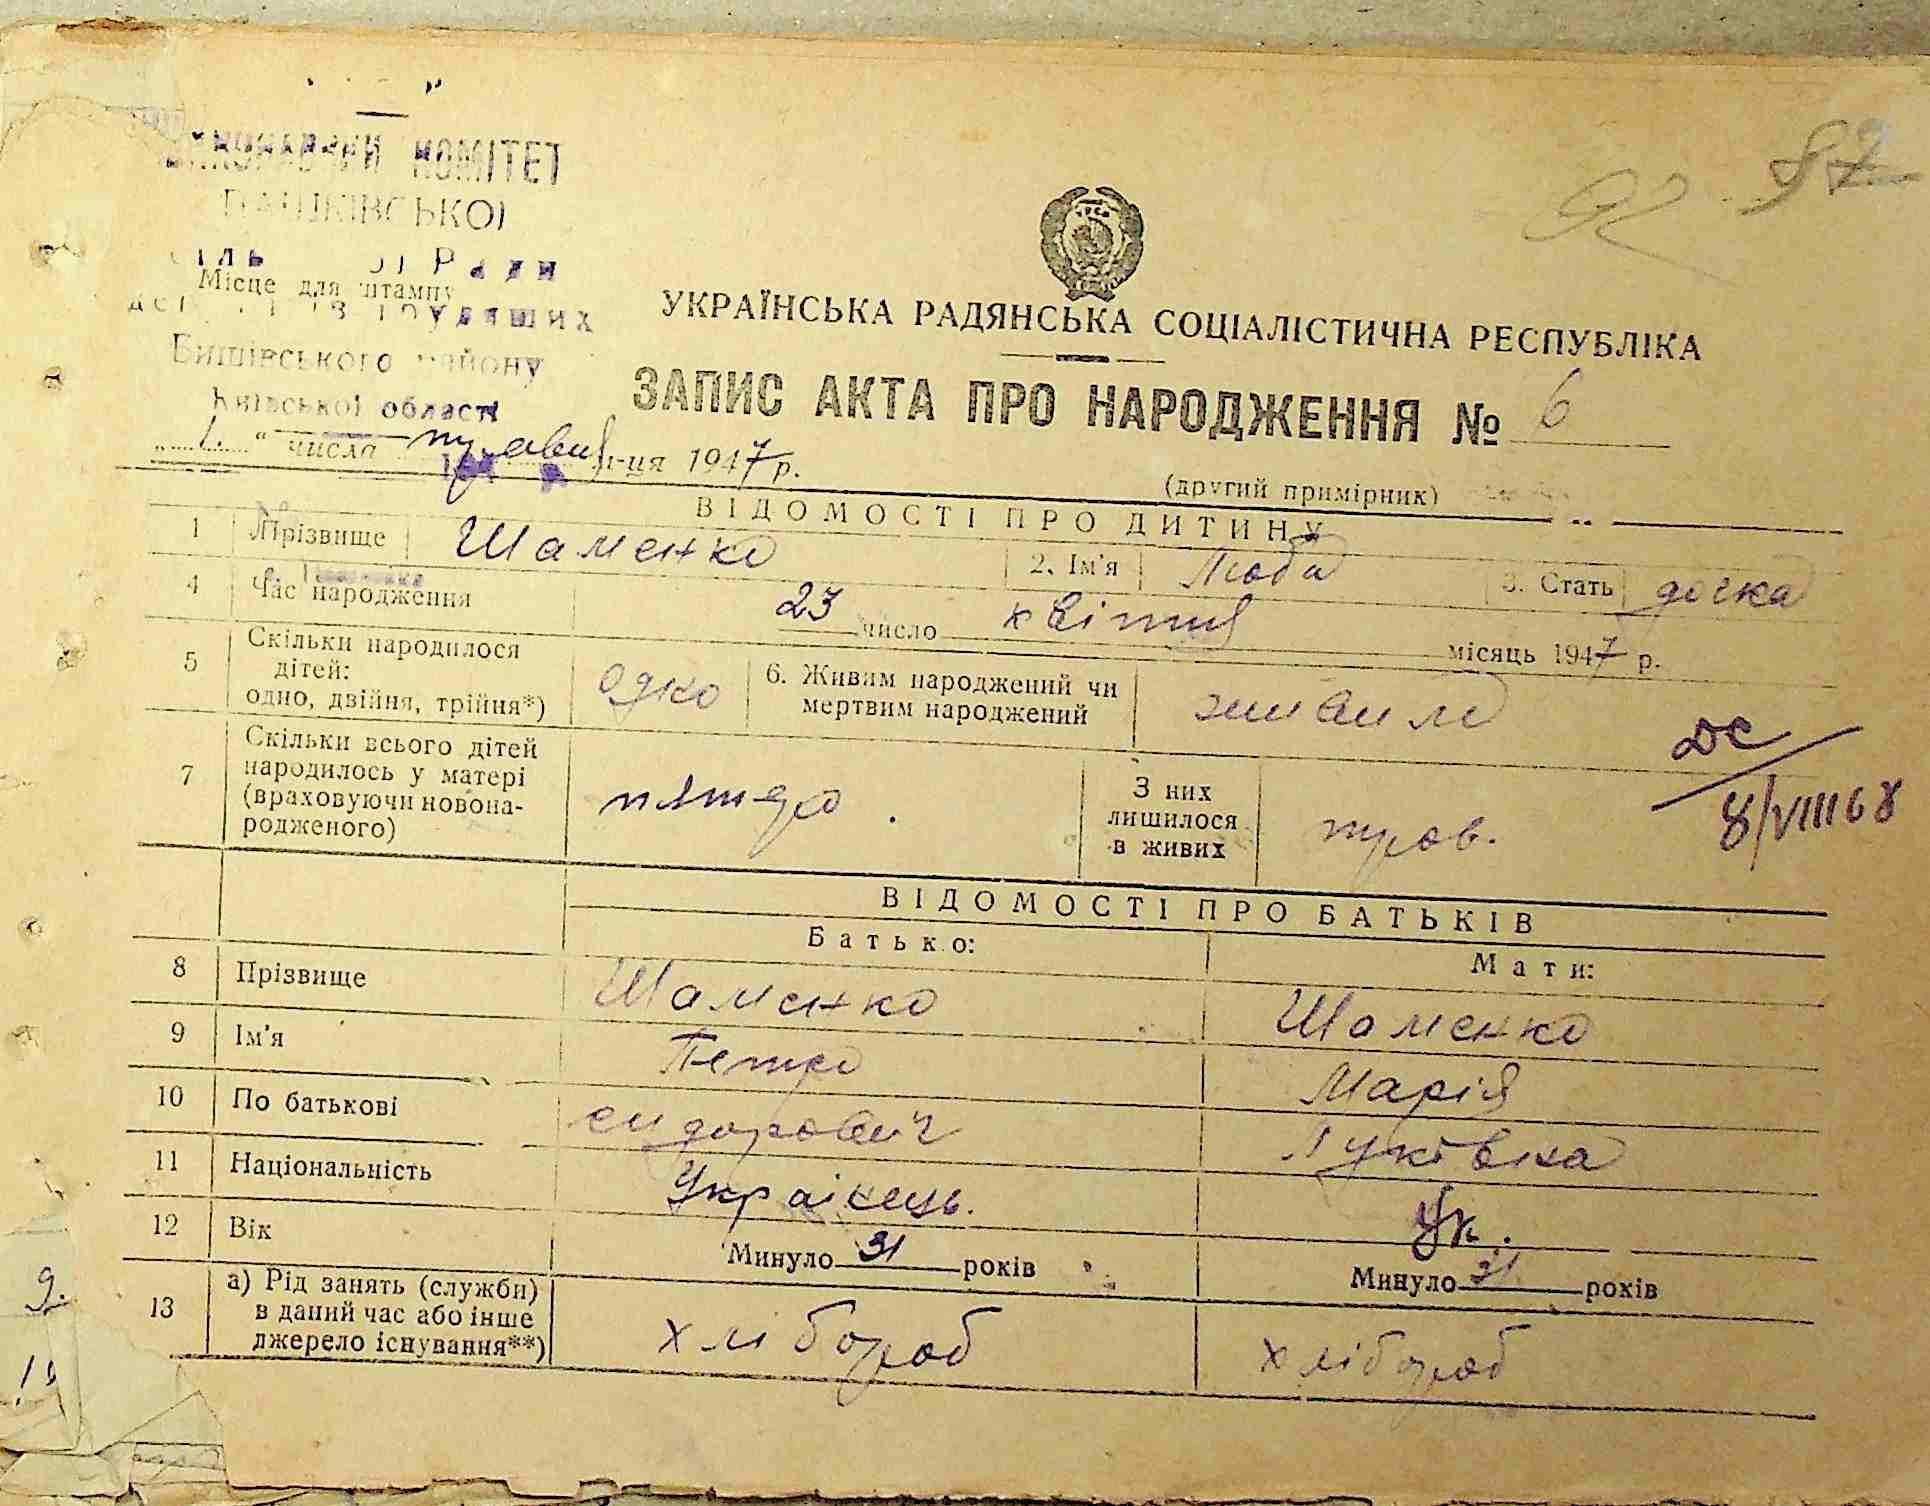 КОМІТЕТ
Ради
Місце для штампу
району
Київської області
УКРАЇНСЬКА РАДЯНСЬКА СОЦІАЛІСТИЧНА РЕСПУБЛІКА
ЗАПИС АКТА ПРО НАРОДЖЕННЯ № 6
„ 1. “ числа травня м-ця 1947 р.
(другий примірник)
ВІДОМОСТІ ПРО ДИТИНУ
1 Прізвище Шаменко 2. Ім'я Люба 3. Стать дочка
4 Час народження 23 число квітня місяць 1947 р.
5 Скільки народилося
дітей:
одно, двійня, трійня*) одно 6. Живим народжений чи
мертвим народжений живим
7 Скільки всього дітей
народилось у матері
(враховуючи новона-
родженого) пятеро. З них
лишилося
в живих троє.
8/VIII 68
ВІДОМОСТІ ПРО БАТЬКІВ
Батько: Мати:
8 Прізвище Шаменко Шаменко
9 Ім'я Петро Марія
10 По батькові сидорович Луківна
11 Національність Українець. Ук.
12 Вік Минуло 31 років Минуло 31 років
13 а) Рід занять (служби)
в даний час або інше
джерело існування**) хлібороб хлібороб
9.